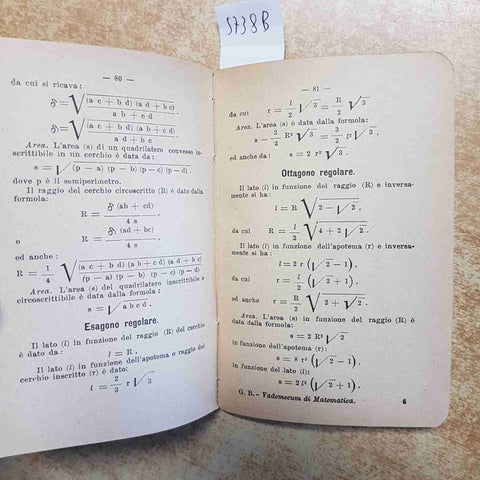 5738B
— 80 —
da cui si ricava:
δ = √((a c + b d) (a d + b c) / (a b + c d)) .
δ₁ = √((a c + b d) (a b + c d) / (a d + b c))
Area. L'area (s) di un quadrilatero convesso in-
scrittibile in un cerchio è data da:
s = √(p — a) (p — b) (p — c) (p — d) .
dove p è il semiperimetro.
Il raggio del cerchio circoscritto (R) è dato dalla
formola:
R = δ (ab + cd) / 4 s
o
R = δ₁ (ad + bc) / 4 s
ed anche :
R = 1/4 √((a c + b d) (a b + c d) (a d + b c) / (p — a) (p — b) (p — c) (p — d))
Area. L'area (s) del quadrilatero inscrittibile e
circoscrittibile è data dalla formula :
s = √a b c d .
Esagono regolare.
Il lato (l) in funzione del raggio (R) del cerchio
è dato da : l = R .
Il lato (l) in funzione dell'apotema o raggio del
cerchio inscritto (r) è dato:
l = 2/3 r √3
— 81 —
da cui r = l/2 √3 = R/2 √3
Area. L'area (s) è data dalla formola:
s = 3/2 R² √3 = 3/2 l² √3 ,
ed anche da : s = 2 r² √3 .
Ottagono regolare.
Il lato (l) in funzione del raggio (R) e inversa-
mente si ha :
l = R √(2 — √2) .
da cui R = l/2 √(4 + 2 √2) .
Il lato (l) in funzione dell'apotema (r) e inversa-
mente si ha :
l = 2 r (√2 — 1) .
da cui r = l/2 (√2 + 1) .
ed anche r = R/2 √(2 + √2) .
Area. L'area (s) in funzione del raggio (R) è
data dalla formula:
s = 2 R² √2
in funzione dell'apotema (r) :
s = 8 r² (√2 — 1) .
in funzione del lato (l) :
s = 2 l² (√2 + 1) .
G. B. - Vademecum di Matematica. 6